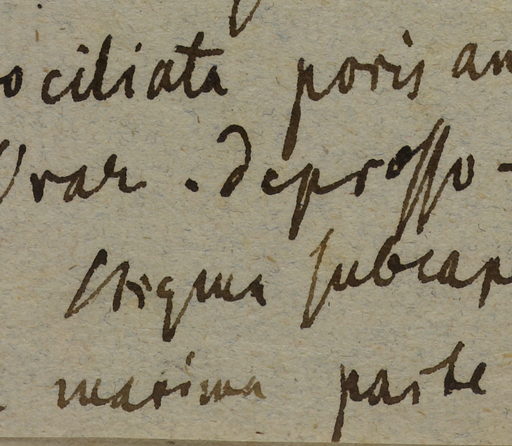 ociliata poris an
Ovar. depresso-
Stigma subcap
maxima parte